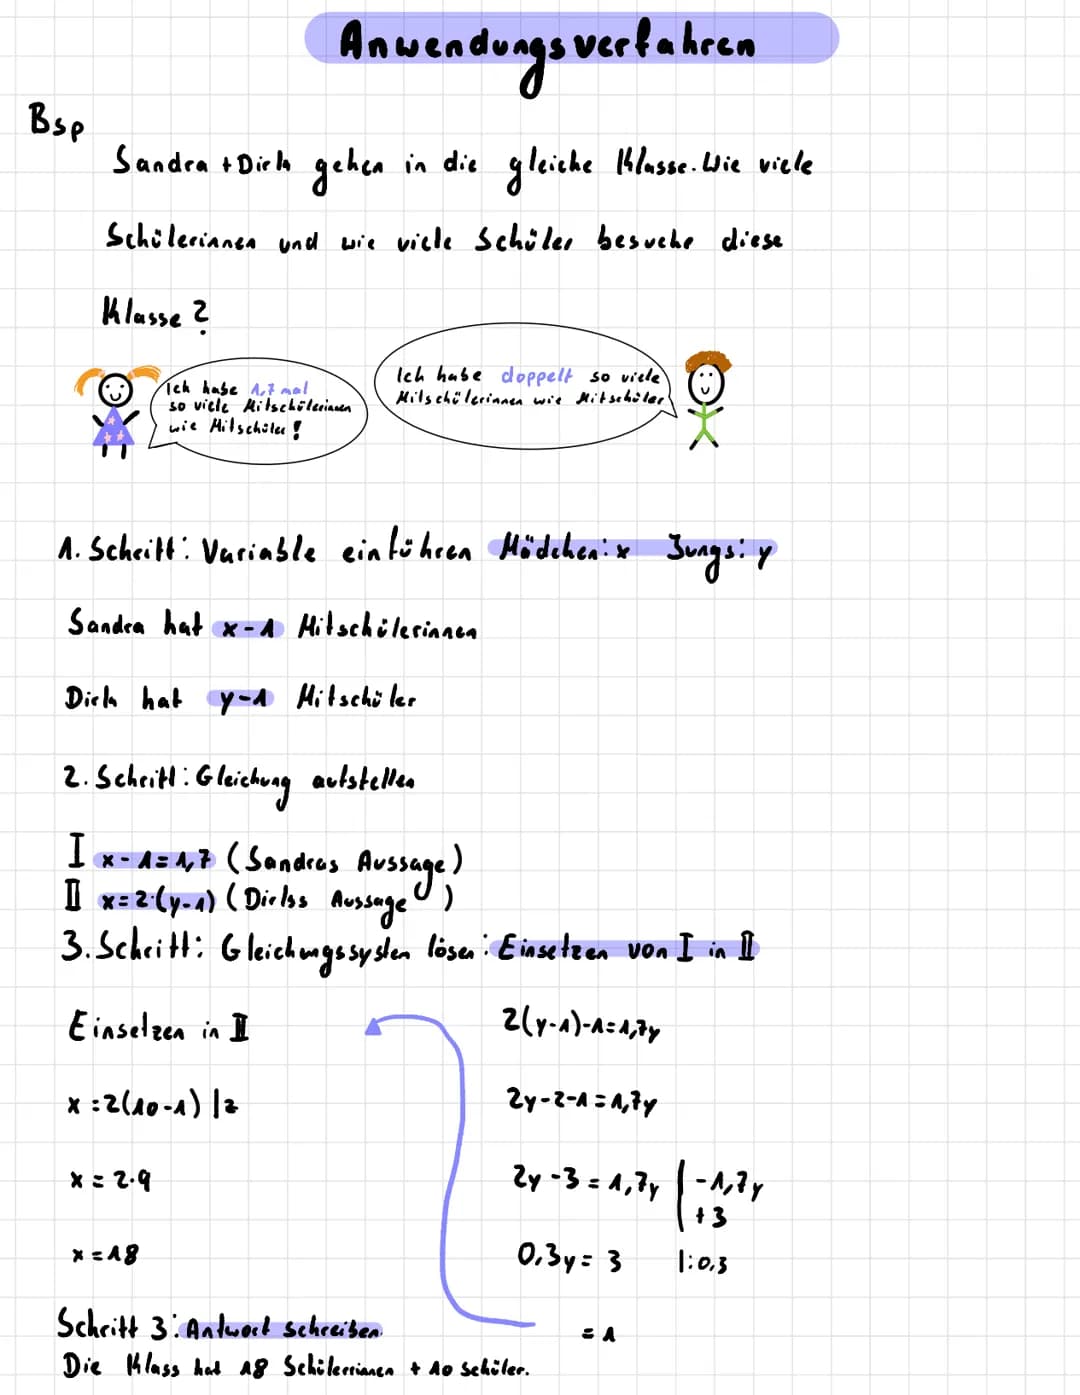 Anwendungsverfahren
Bsp
Sandra + Dirk gehen in die gleiche Klasse. Wie viele
Schülerinnen und wie viele Schüler besuche diese
Klasse?
Ich habe 1,7 mal
so viele Mitschülerinnen
wie Mitschüler!
Ich habe doppelt so viele
Mitschülerinnen wie Mitschüler
1. Schritt: Variable einführen Mädchen: x Jungs: y
Sandra hat x-1 Mitschülerinnen
Dirk hat y-1 Mitschüler
2. Schritt: Gleichung aufstellen
I x-1=1,7 (Sandras Aussage)
II x=2·(y-1) (Dirkss Aussage)
3. Schritt: Gleichungssystem lösen: Einsetzen von I in II
Einsetzen in II
x=2(10-1) |2
x=2·9
x=18
2(y-1)-1=1,7y
2y-2-1=1,7y
2y-3=1,7y |-1,7y
+3
0,3y=3 |:0,3
=1
Schritt 3: Antwort schreiben.
Die Klass hat 18 Schülerrinnen + 10 Schüler.